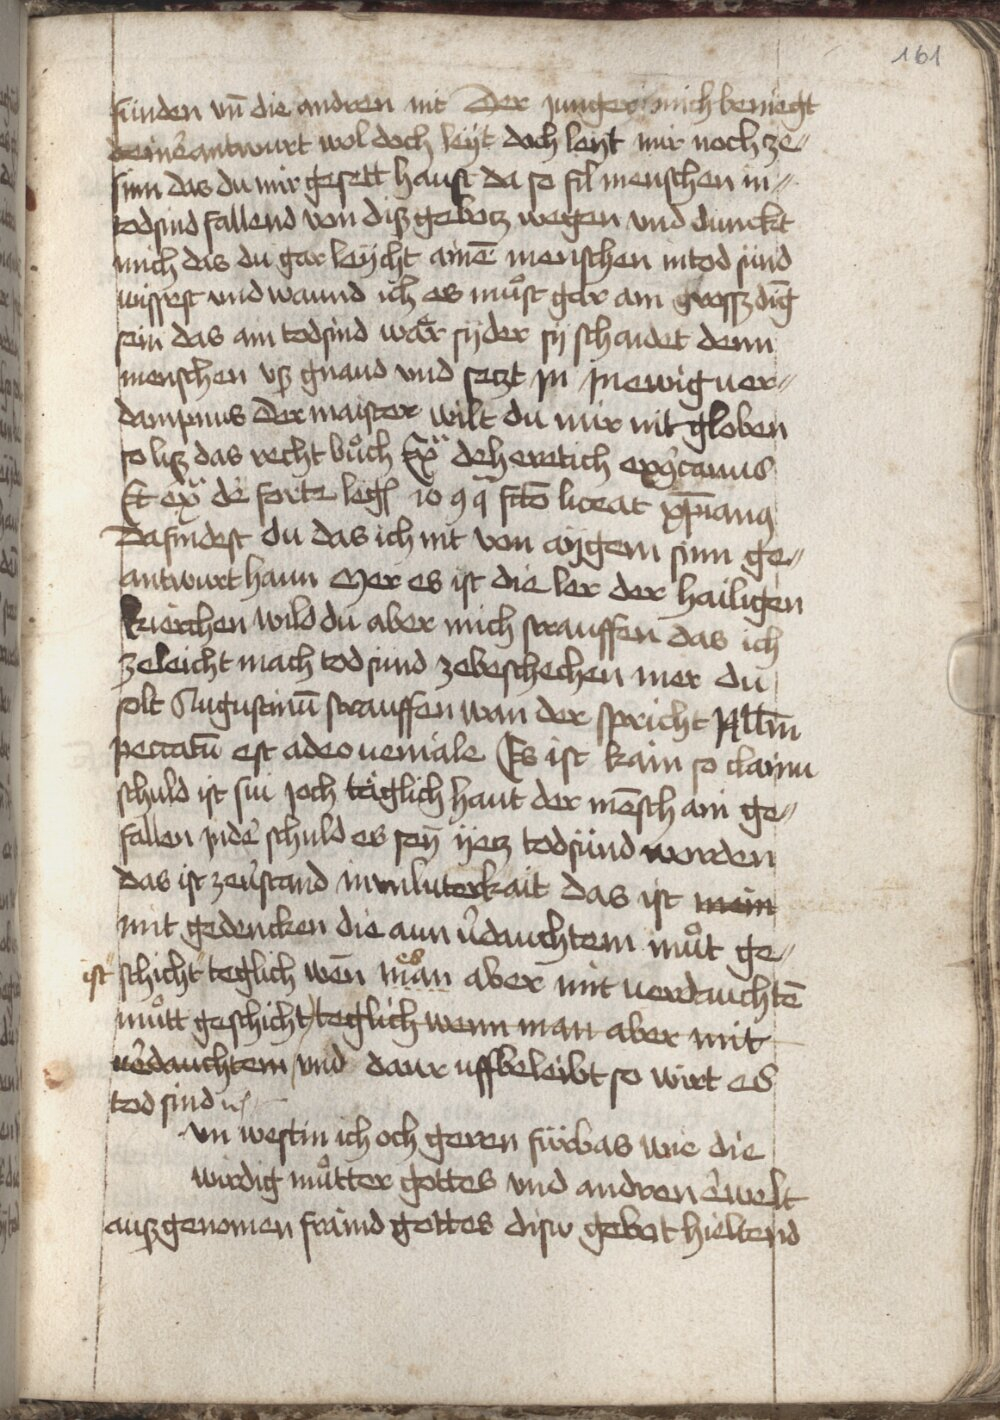 161
sünden vn̄ die andren nit Der junger mich beniegt
deiner antwurt wol doch leyt doch leyt mir noch ze-
sinn das du mir gesett haust da so fil menschen in-
todsind fallend von diß gebotz wegen vnd dunckt
mich das du gar leycht ainē menschen in tod sünd
wissest vnd waund ich es muͦst gar ain gross dīg
sein das ain todsind wär syder sy schaidet denn
menschen vß gnaud vnd setzt jn jn ewig uer-
dampnus Der maister wilt du mir nit globen
so liß das recht buͦch Ex̄ de heretich
Et ex̄ de liceat
Da findest du das ich nit von aygem sinn ge-
antwurt haun Mer es ist die ler der hailigen
kierchen wild du aber mich strauffen das ich
ze leicht mach tod sünd ze beschechen mer du
solt Augustinū strauffen wan der spricht Nllm̄
peccatū est adeo ueniale Es ist kain so clainu
schuld ist sui joch täglich haut der mēsch ain ge-
fallen jn der schuld es sey yetz todsünd worden
das ist ze ūstand in vnluterkait das ist mein
mit gedencken die aun ūdauchtem muͦt ge-
ist schicht teglich wēn man es aber mit uerdauchtē
muͦtt geschicht teglich wenn man aber mit
verdauchtem vnd daur uff beleibt so wirt es
tod sind
vn westin ich och geren fürbas wie die
wirdig muͦtter gottes vnd andren erwelt
auß genomen fraind gottes disu gebot hieltend